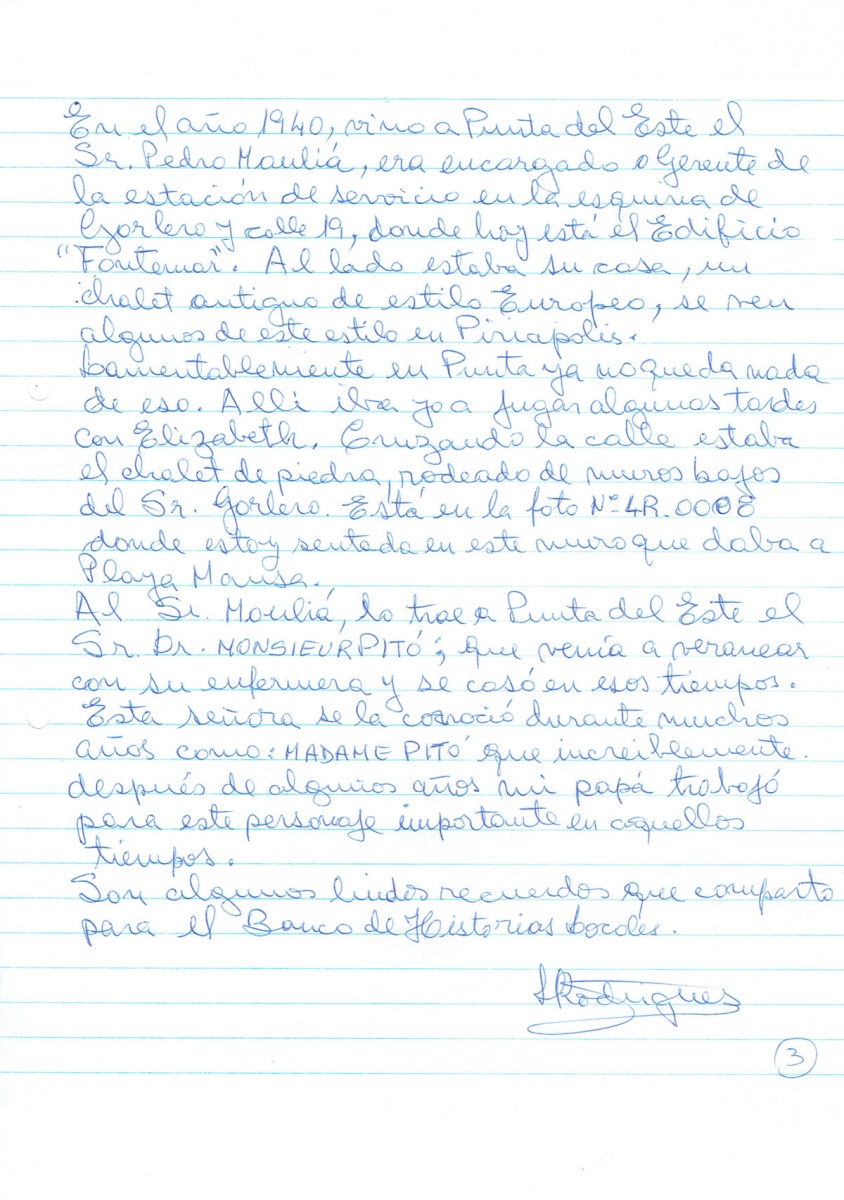 En el año 1940, vino a Punta del Este el
Sr. Pedro Mouliá, era encargado o Gerente de
la estación de servicio en la esquina de
Gorlero y calle 19, donde hoy está el Edificio
"Fontemar". Al lado estaba su casa, un
chalet antiguo de estilo Europeo, se ven
algunos de este estilo en Piriapolis.
Lamentablemente en Punta ya no queda nada
de eso. Alli iba yo a jugar algunas tardes
con Elizabeth. Cruzando la calle estaba
el chalet de piedra, rodeado de muros bajos
del Sr. Gorlero. Está en la foto Nº 4R.0008
donde estoy sentada en este muro que daba a
Playa Mansa.
Al Sr. Mouliá, lo trae a Punta del Este el
Sr. Dr. MONSIEUR PITÓ; que venía a veranear
con su enfermera y se casó en esos tiempos.
Esta señora se la conoció durante muchos
años como: MADAME PITÓ que increiblemente.
después de algunos años mi papá trabajó
para este personaje importante en aquellos
tiempos.
Son algunos lindos recuerdos que comparto
para el Banco de Historias Locales.
Rodrigues
3